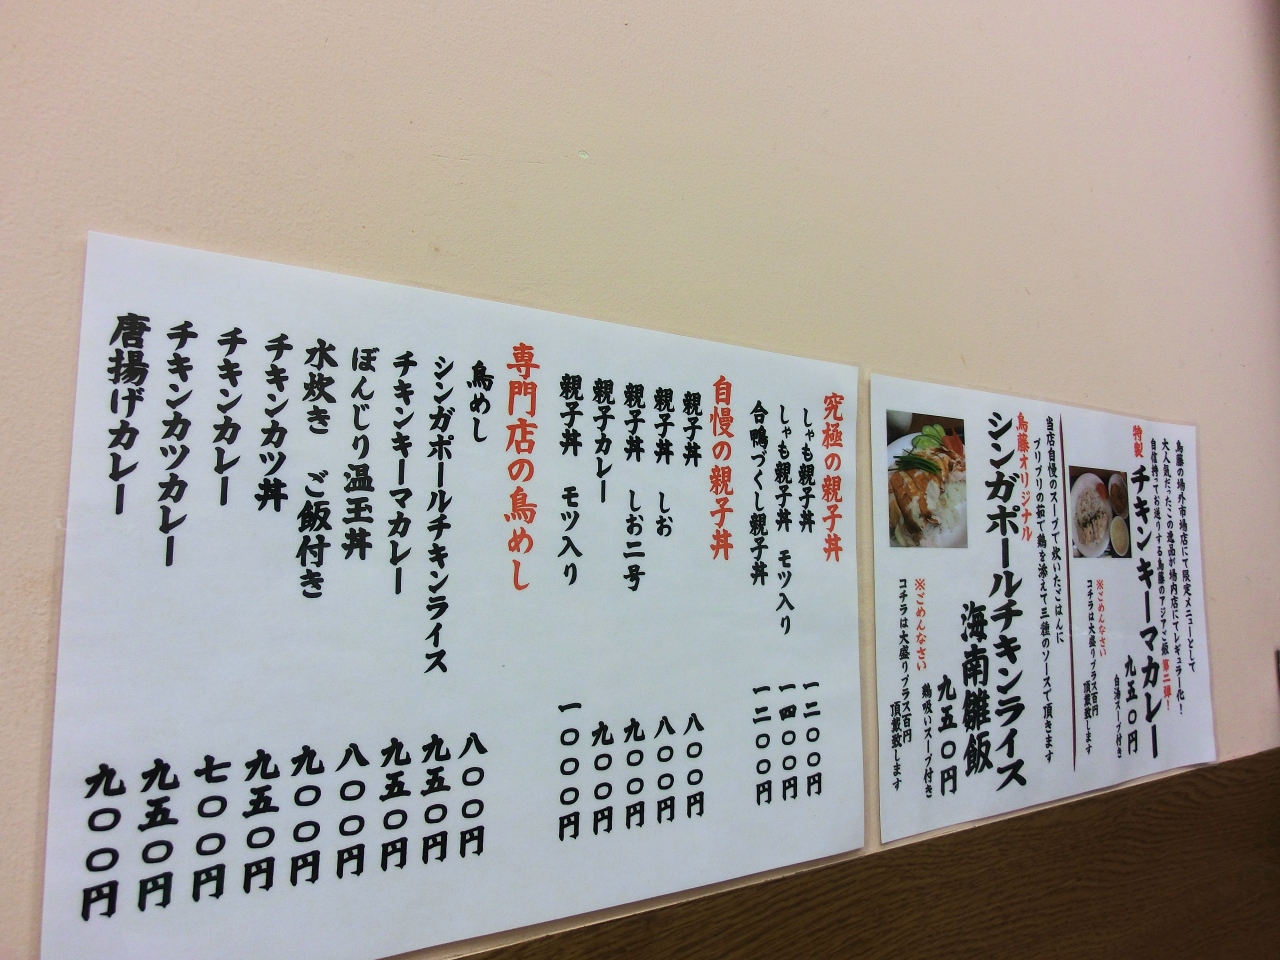 鳥藤の場外市場店にて限定メニューとして
大人気だったこの逸品が場内店にてレギュラー化！
自信持ってお送りする鳥藤のアジアご飯 第二弾！
特製 チキンキーマカレー
九五〇円
白湯スープ付き
※ごめんなさい
コチラは大盛りプラス百円
頂戴致します
当店自慢のスープで炊いたごはんに
プリプリの茹で鶏を添えて三種のソースで頂きます
鳥藤オリジナル
シンガポールチキンライス
海南雞飯
九五〇円
鶏吸いスープ付き
※ごめんなさい
コチラは大盛りプラス百円
頂戴致します
究極の親子丼
しゃも親子丼 一二〇〇円
しゃも親子丼 モツ入り 一四〇〇円
合鴨づくし親子丼 一二〇〇円
自慢の親子丼
親子丼 八〇〇円
親子丼 しお 八〇〇円
親子丼 しお二号 九〇〇円
親子カレー 九〇〇円
親子丼 モツ入り 一〇〇〇円
専門店の鳥めし
鳥めし 八〇〇円
シンガポールチキンライス 九五〇円
チキンキーマカレー 九五〇円
ぼんじり温玉丼 八〇〇円
水炊き ご飯付き 九〇〇円
チキンカツ丼 九五〇円
チキンカレー 七〇〇円
チキンカツカレー 九五〇円
唐揚げカレー 九〇〇円